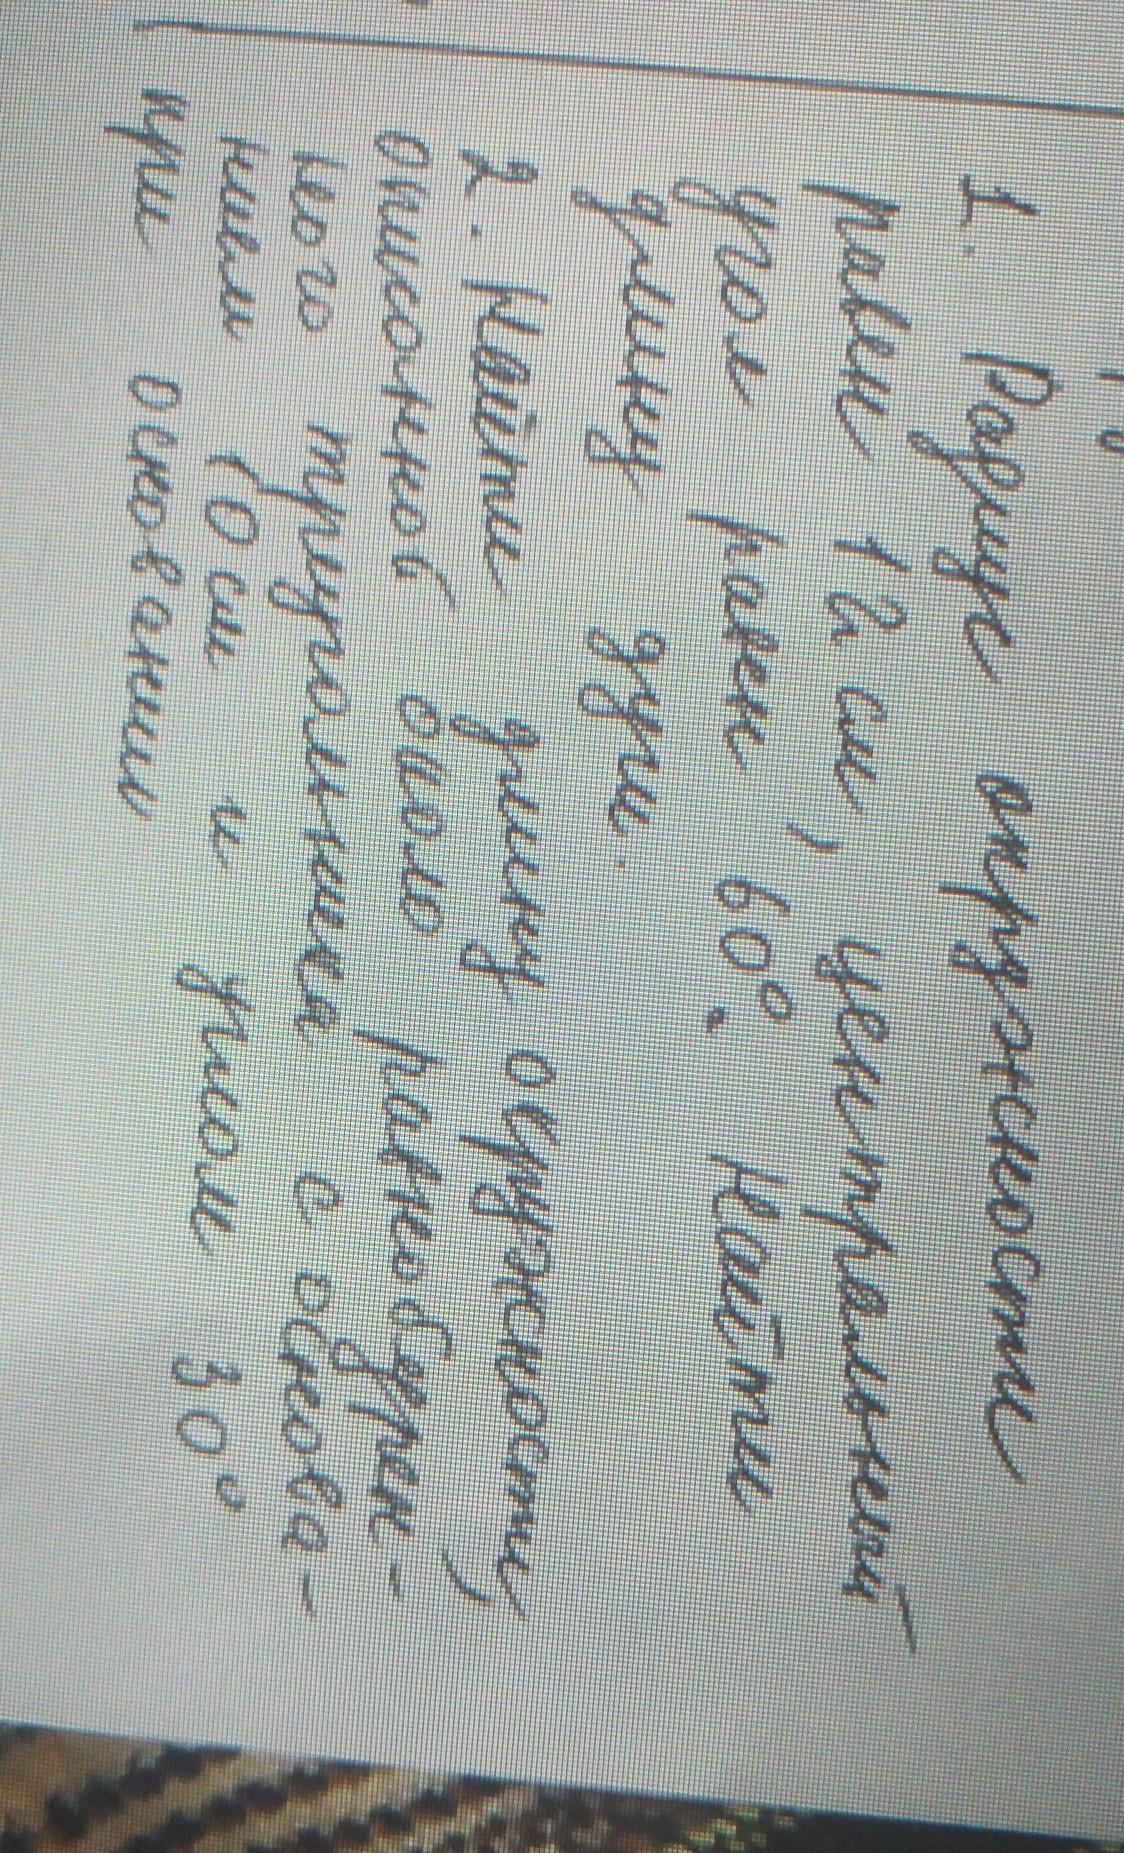 1. Радиус окружности
равен 12 см, центральный
угол равен 60°. Найти
длину дуги.
2. Найти длину окружности,
описанной около равнобедрен-
ного треугольника с основа-
нием 10 см и углом 30°
при основании